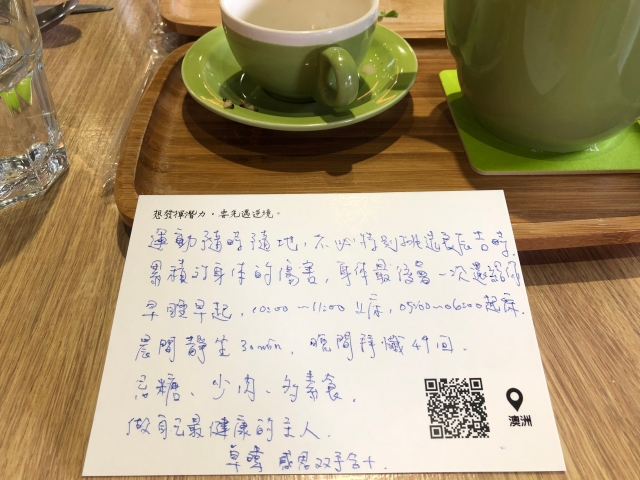 想發揮潛力，要先遇逆境。
運動隨時隨地，不必特別挑選良辰吉時，
累積的身体的傷害，身体最後會一次還給你
早睡早起，10:00～11:00上床，05:00～06:00起床，
晨間靜坐30min，晚間拜懺49回，
忌糖、少肉、多素食，
做自己最健康的主人，
感恩双手合十，
澳洲